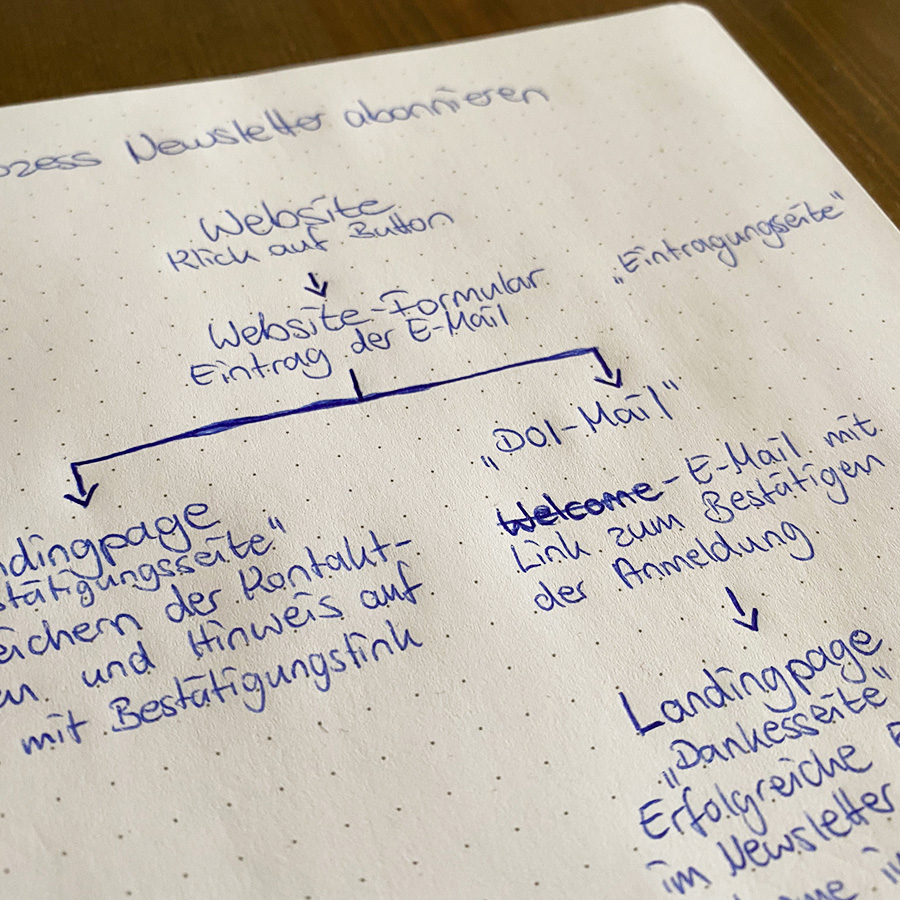 ozess Newsletter abonnieren
Website
Klick auf Button
"Eintragungseite"
Website-Formular
Eintrag der E-Mail
ndingpage
stätigungsseite"
eichern der Kontakt-
en und Hinweis auf
mit Bestätigungslink
„DOI-Mail"
Welcome-E-Mail mit
Link zum Bestätigen
der Anmeldung
Landingpage
„Dankesseite"
Erfolgreiche E
im Newsletter